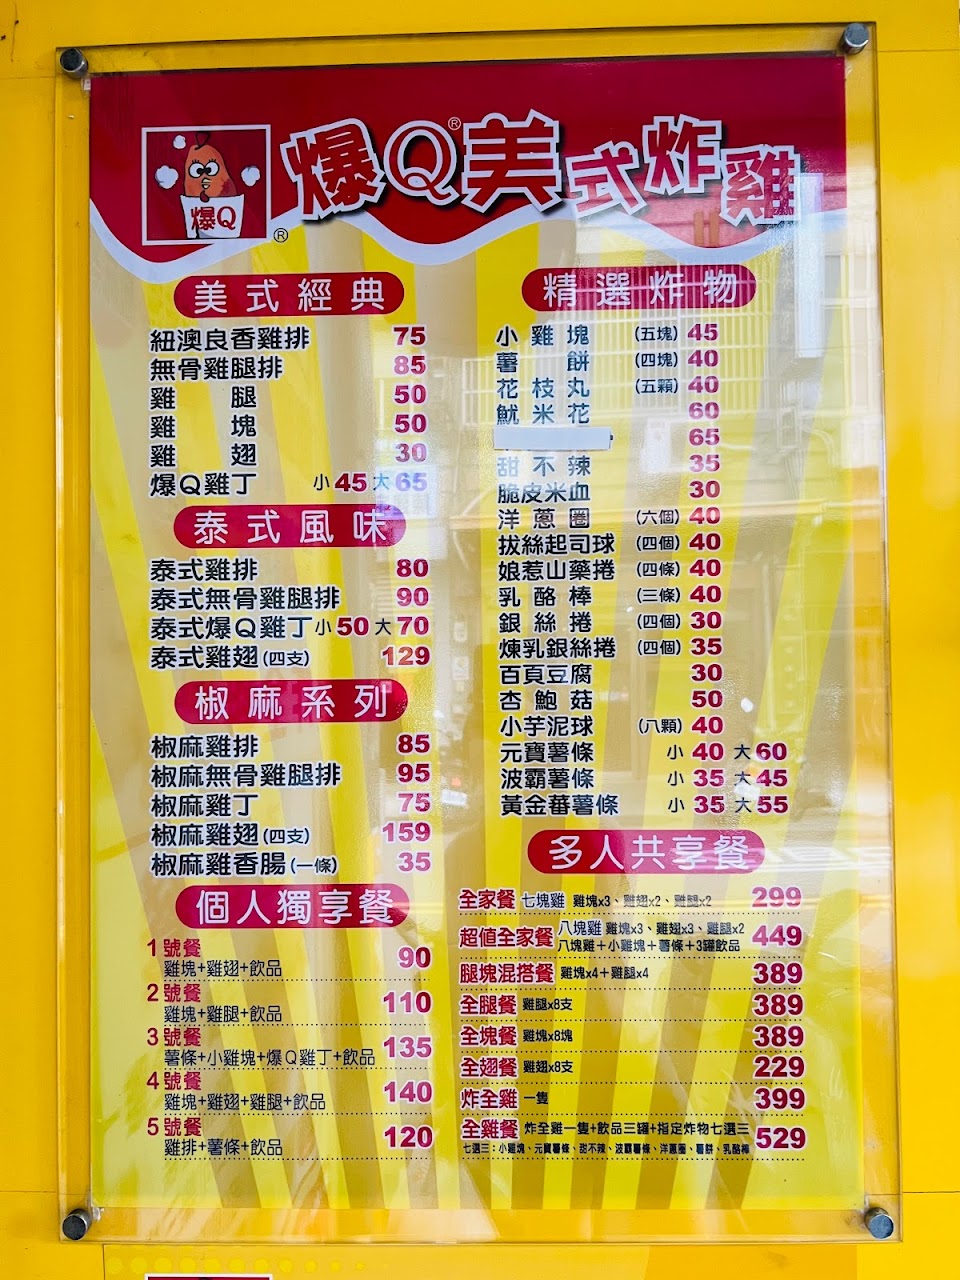 爆Q®美式炸雞
爆Q
®
美式經典
紐澳良香雞排 75
無骨雞腿排 85
雞腿 50
雞塊 50
雞翅 30
爆Q雞丁 小45 大65
泰式風味
泰式雞排 80
泰式無骨雞腿排 90
泰式爆Q雞丁 小50 大70
泰式雞翅(四支) 129
椒麻系列
椒麻雞排 85
椒麻無骨雞腿排 95
椒麻雞丁 75
椒麻雞翅(四支) 159
椒麻雞香腸(一條) 35
個人獨享餐
1號餐
雞塊+雞翅+飲品 90
2號餐
雞塊+雞腿+飲品 110
3號餐
薯條+小雞塊+爆Q雞丁+飲品 135
4號餐
雞塊+雞翅+雞腿+飲品 140
5號餐
雞排+薯條+飲品 120
精選炸物
小雞塊 (五塊) 45
薯餅 (四塊) 40
花枝丸 (五顆) 40
魷米花 60
65
甜不辣 35
脆皮米血 30
洋蔥圈 (六個) 40
拔絲起司球 (四個) 40
娘惹山藥捲 (四條) 40
乳酪棒 (三條) 40
銀絲捲 (四個) 30
煉乳銀絲捲 (四個) 35
百頁豆腐 30
杏鮑菇 50
小芋泥球 (八顆) 40
元寶薯條 小 40 大 60
波霸薯條 小 35 大 45
黃金蕃薯條 小 35 大 55
多人共享餐
全家餐 七塊雞 雞塊x3、雞翅x2、雞腿x2 299
超值全家餐 八塊雞 雞塊x3、雞翅x3、雞腿x2 449
八塊雞+小雞塊+薯條+3罐飲品
腿塊混搭餐 雞塊x4+雞腿x4 389
全腿餐 雞腿x8支 389
全塊餐 雞塊x8塊 389
全翅餐 雞翅x8支 229
炸全雞 一隻 399
全雞餐 炸全雞一隻+飲品三罐+指定炸物七選三 529
七選三：小雞塊、元寶薯條、甜不辣、波霸薯條、洋蔥圈、薯餅、乳酪棒